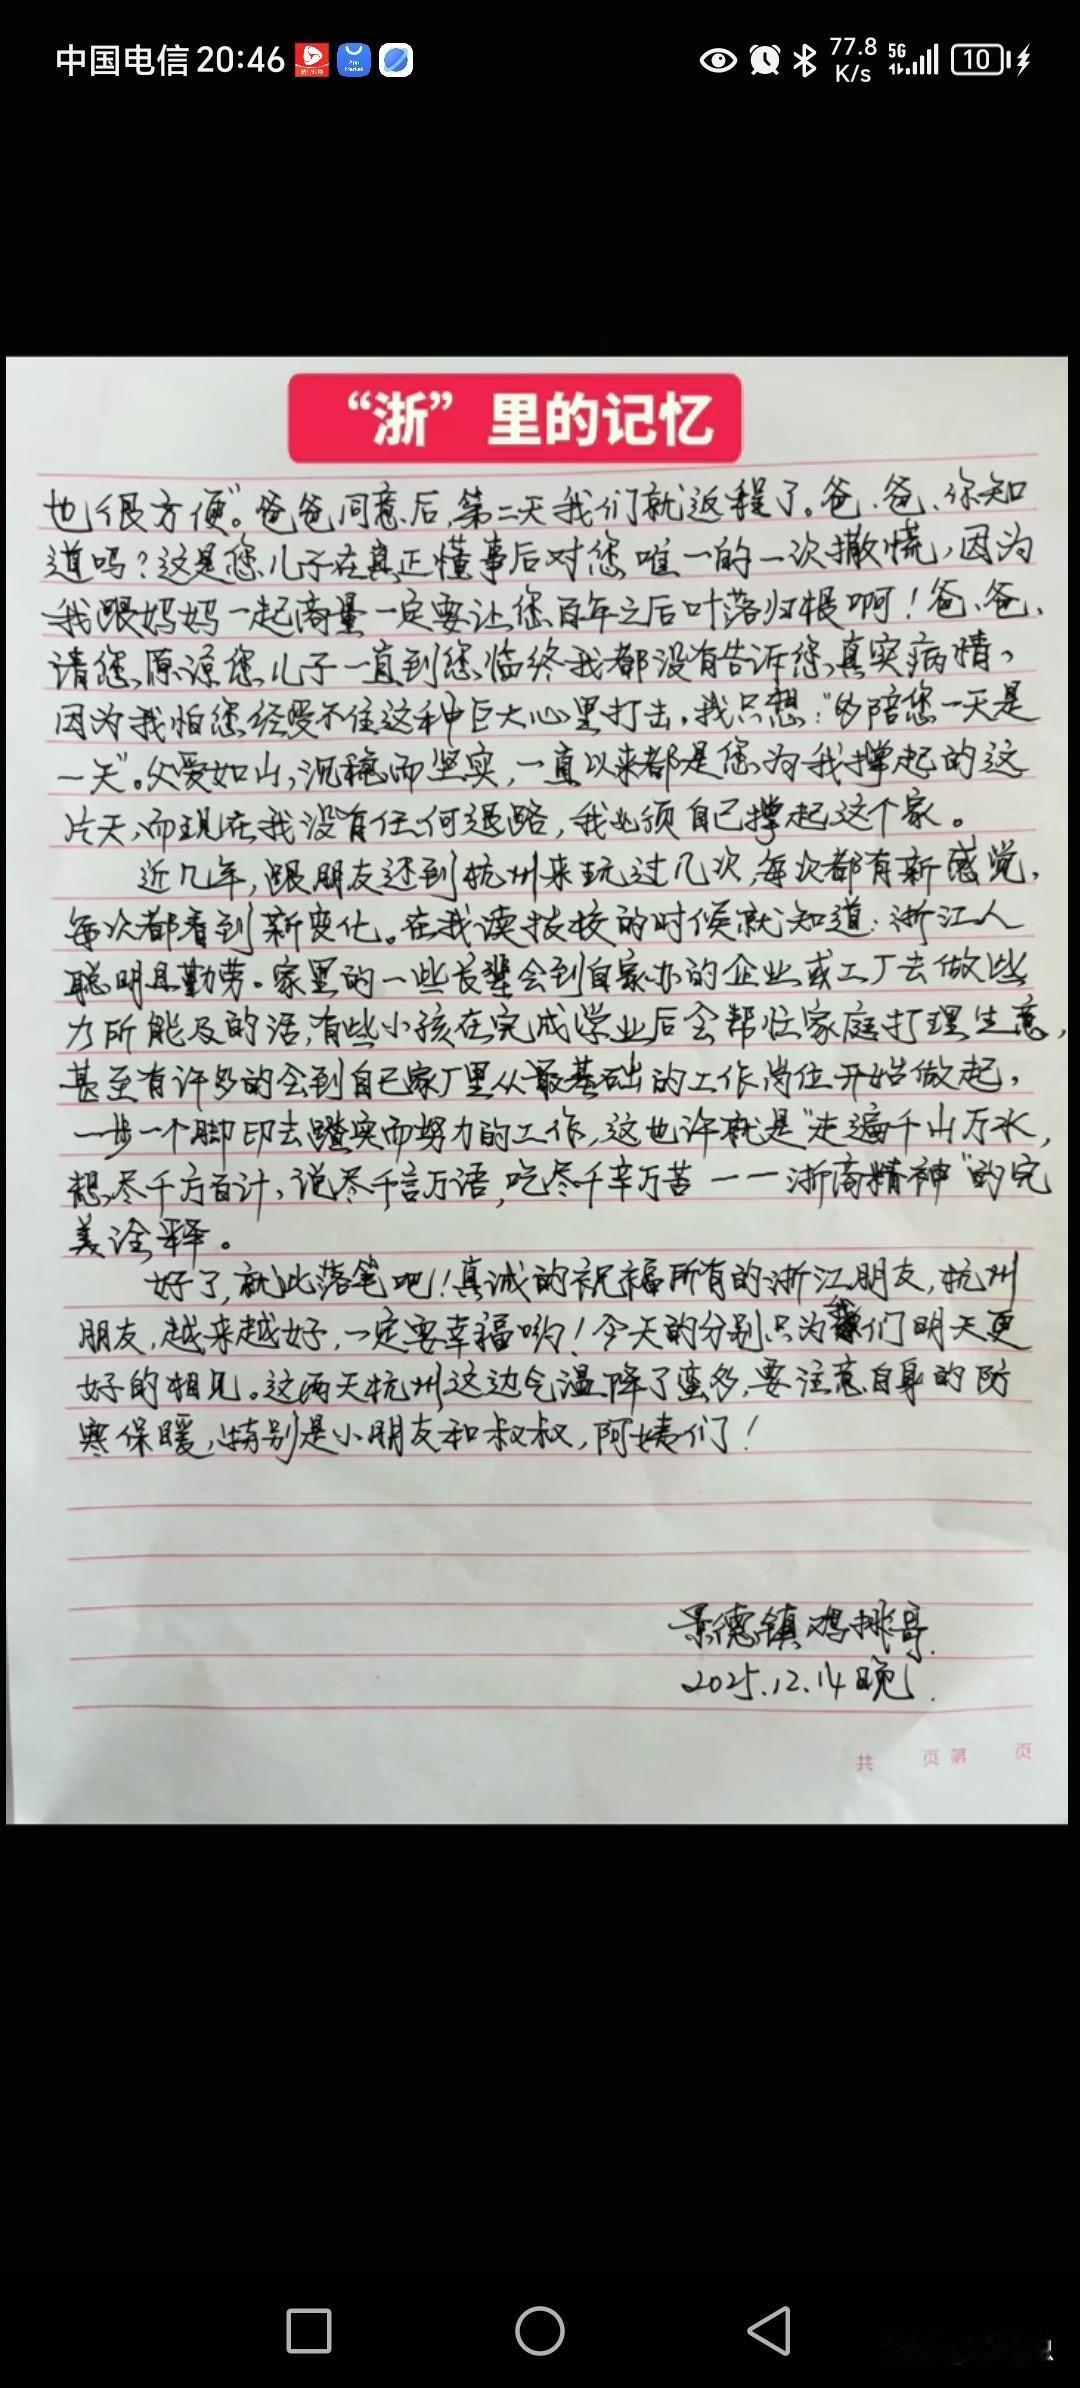 中国电信 20:46
77.8 K/s 5G 10
“浙”里的记忆
也很方便”。爸爸同意后,第二天我们就返程了。爸、爸、你知
道吗?这是您儿子在真正懂事后对您唯一的一次撒慌,因为
我跟妈妈一起商量一定要让您百年之后叶落归根啊!爸、爸、
请您原谅您儿子一直到您临终我都没有告诉您真实病情、
因为我怕您经受不住这种巨大心里打击,我只想:“多陪您一天是
一天”。父爱如山,沉稳而坚实,一直以来都是您为我撑起的这
片天,而现在我没有任何退路,我必须自己撑起这个家。
近几年,跟朋友还到杭州来玩过几次,每次都有新感觉,
每次都看到新变化。在我读技校的时候就知道:浙江人
聪明且勤劳。家里的一些长辈会到自家办的企业或工厂去做些
力所能及的活,有些小孩在完成学业后会帮忙家庭打理生意,
甚至有许多的会到自己家厂里从最基础的工作岗位开始做起,
一步一个脚印去踏实而努力的工作,这也许就是“走遍千山万水,
想尽千方百计,说尽千言万语,吃尽千辛万苦——浙商精神”的完
美诠释。
好了,就此落笔吧!真诚的祝福所有的浙江朋友,杭州
朋友,越来越好,一定要幸福哟!今天的分别只为我们明天更
好的相见。这两天杭州这边气温降了蛮多,要注意自身的防
寒保暖,特别是小朋友和叔叔,阿姨们!
景德镇鸡排哥.
2025.12.14晚.
共 页 第 页